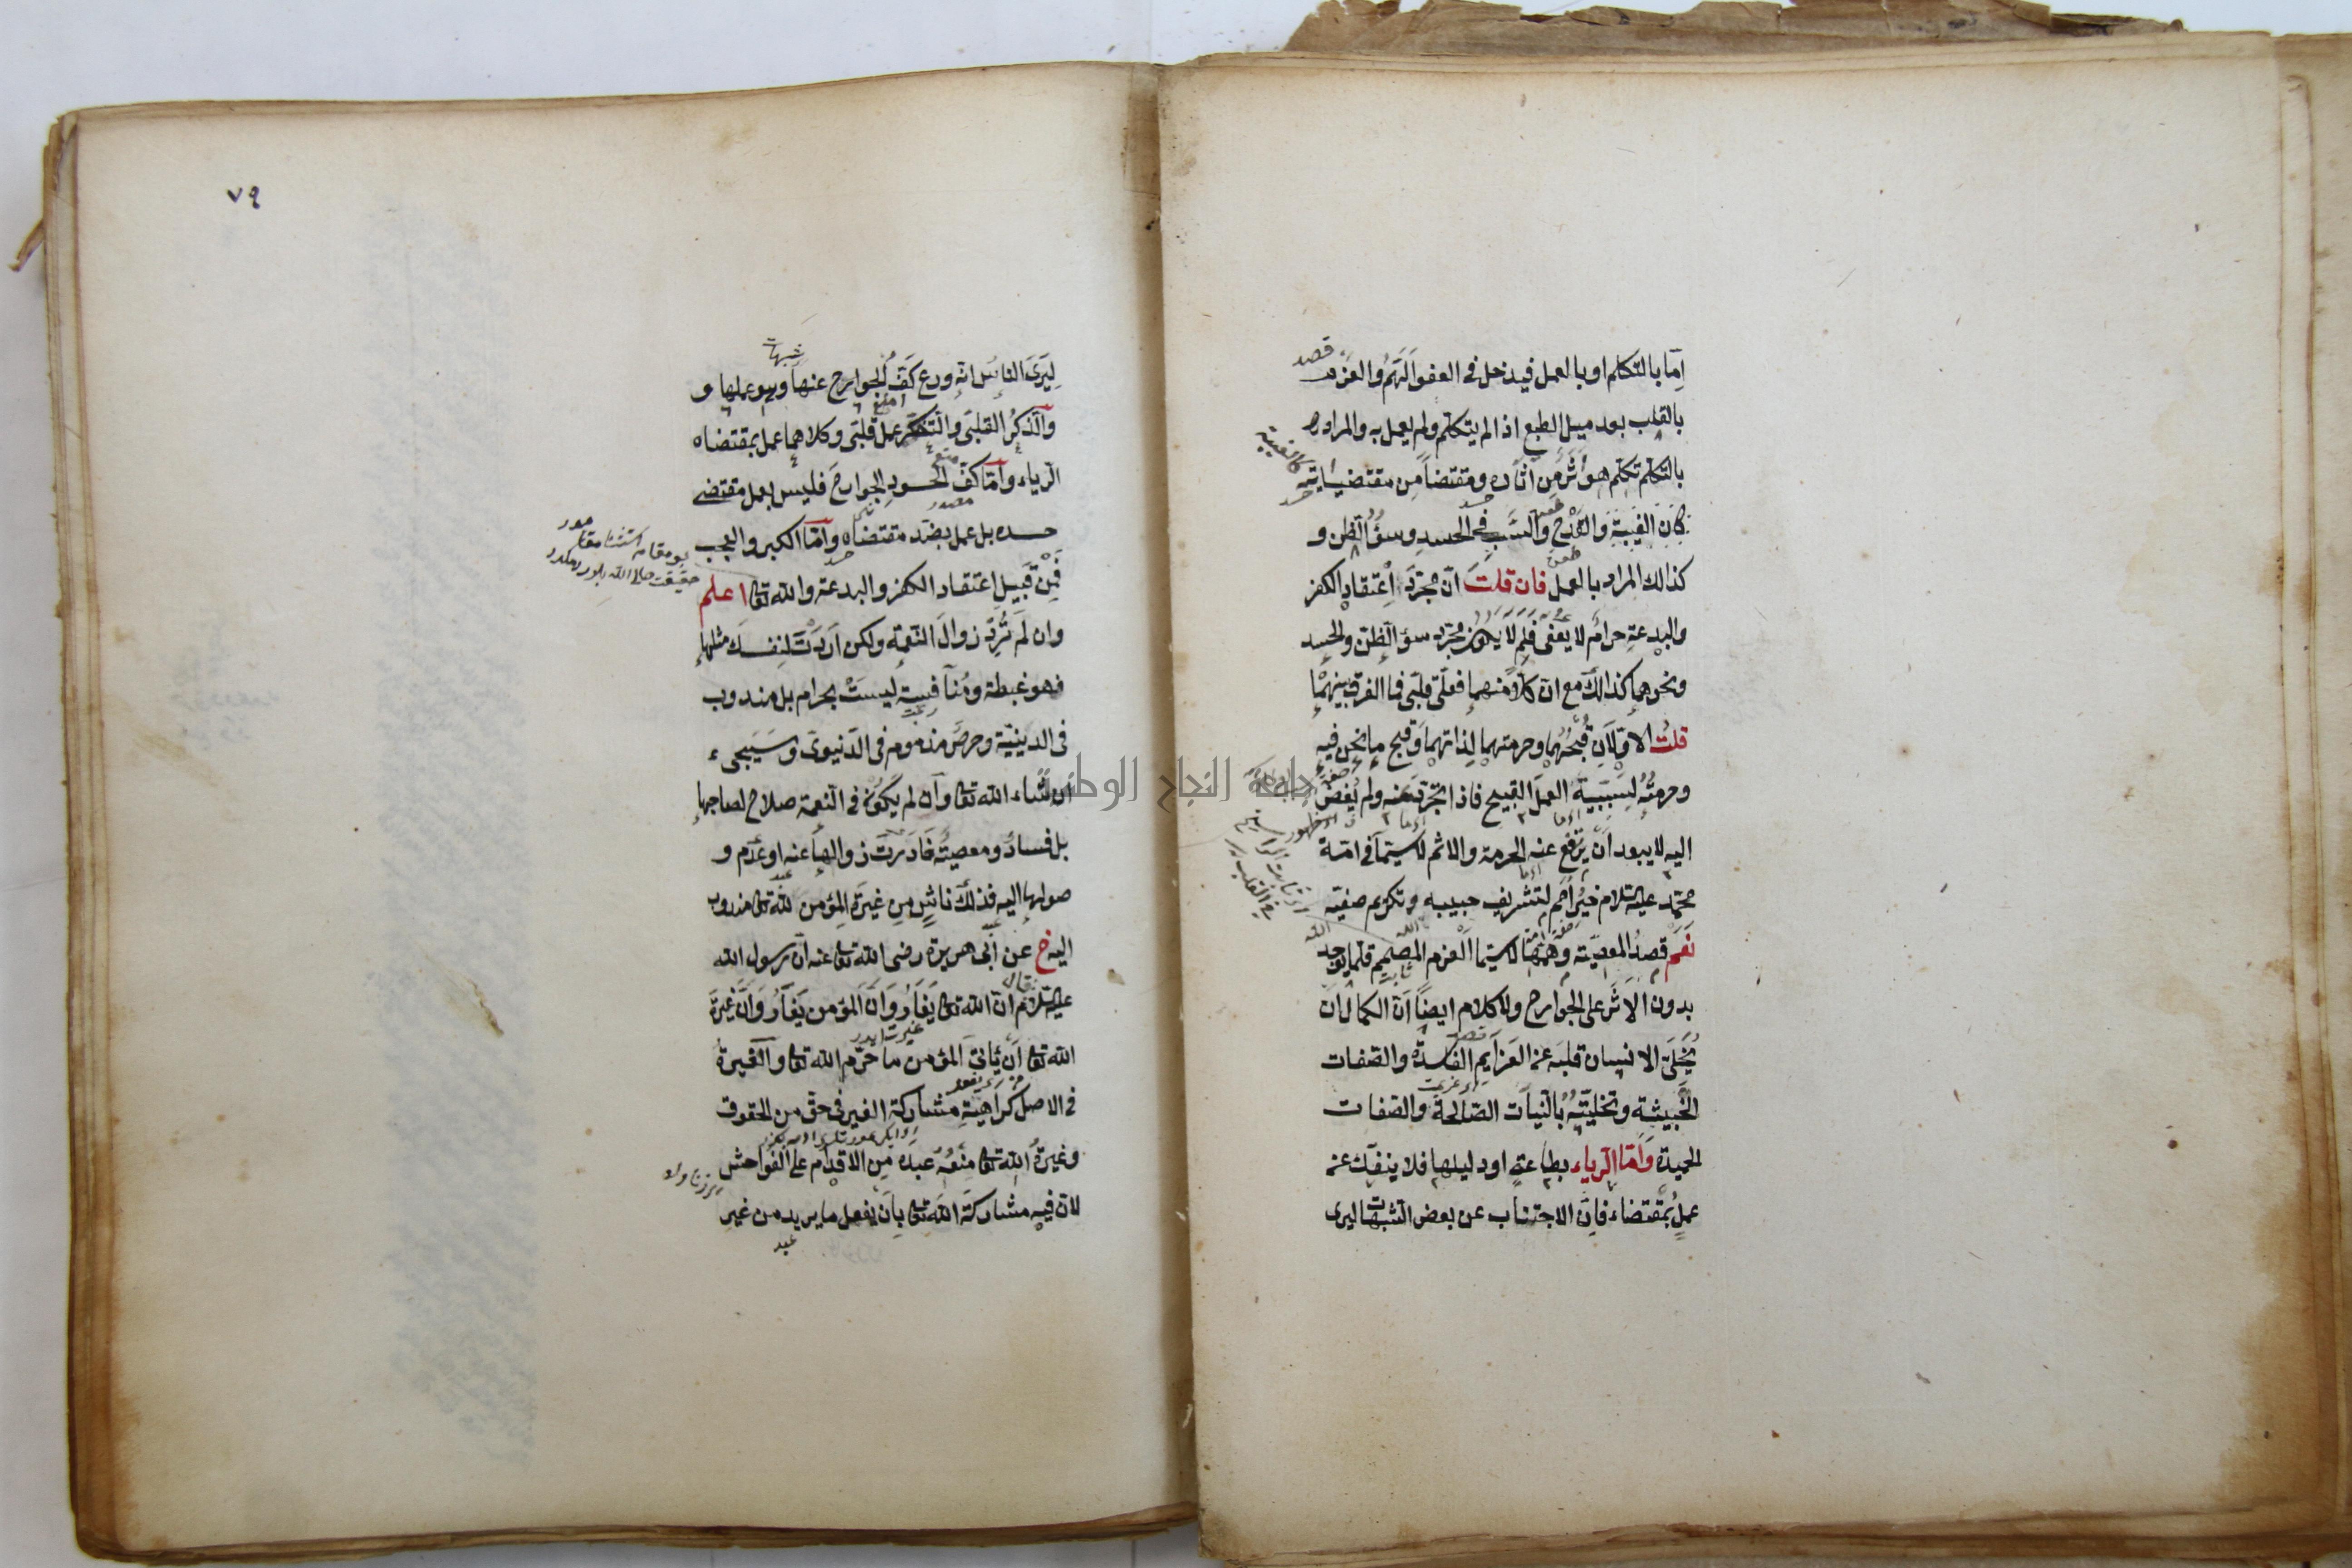 اما بالتكلم او بالعمل فيدخل فى العفو الهم والعزم
قصد
بالقلب بعد ميل الطبع اذا لم يتكلم ولم يعمل به والمراد
بالتكلم تكلم هو اثر من آثاره ومقتضا من مقتضياته
كالغيبة
حسد
كان الغيبة والقدح والسب فى الحسد وسؤ الظن و
كذالك المراد بالعمل فان قلت ان مجرد اعتقاد الكفر
والبدعة حرام لا يعفى فلم لا يكون مجرد سؤ الظن والحسد
ونحوهما كذالك مع ان كلا منهما فعل قلبى فما الفرق بينهما
قلت الاولان قبحهما وحرمتهما لذاتهما وقبح ما نحن فيه
وحرمته لسببية العمل القبيح فاذا تجرد عنه ولم يفض
اليه لا يبعد ان يرتفع عنه الحرمة والاثم لا سيما فى امة
محمد عليه السلام خير امم لتشريف حبيبه وتكريم صفيه
نعم قصد المعصية وهمتها لا سيما العزم المصمم قلما يوجد
بدون الاثر على الجوارح ولا كلام ايضا ان الكمال ان
يخلى الانسان قلبه عن العزايم الفاسدة والصفات
الخبيثة وتحليته بالنيات الصالحة والصفات
الحميدة واما الرياء بطاعة او دليلها فلا ينفك عن
عمل بمقتضاء فان الاجتناب عن بعض الشبهات ليرى
٧٩
ليرى الناس انه ورع كف الجوارح عنها وهو عملها و
والذكر القلبى والتفكر عمل قلبى وكلاهما عمل بمقتضاه
الرياء واما كف الحسود الجوارح فليس بعمل مقتضى
حسده بل عمل بضد مقتضاه واما الكبر والعجب
فمن قبيل اعتقاد الكفر والبدعة والله تعا اعلم
وان لم ترد زوال النعمة ولكن اردت لنفسك مثلها
فهو غبطة ومنافسة ليست بحرام بل مندوب
فى الدينية وحرص مذموم فى الدنيوى وسيجىء
ان شاء الله تعا وان لم يكون فى النعمة صلاح لصاحبها
بل فساد ومعصية فاردت زوالها عنه او عدم و
صولها اليه فذلك ناش من غيرة المؤمن لله تعا مندوب
اليه خ عن ابى هريرة رضى الله تعا عنه ان رسول الله
عليه السلام قال ان الله تعا يغار وان المؤمن يغار وان غيرة
الله تعا ان يأتى المؤمن ما حرم الله تعا والغيرة
فى الاصل كراهية مشاركة الغير فى حق من الحقوق
وغيرة الله تعا منعه عبده من الاقدام على الفواحش
لان فيه مشاركة الله تعا بان يفعل ما يريد من غير
عبد
جامعة النجاح الوطنية